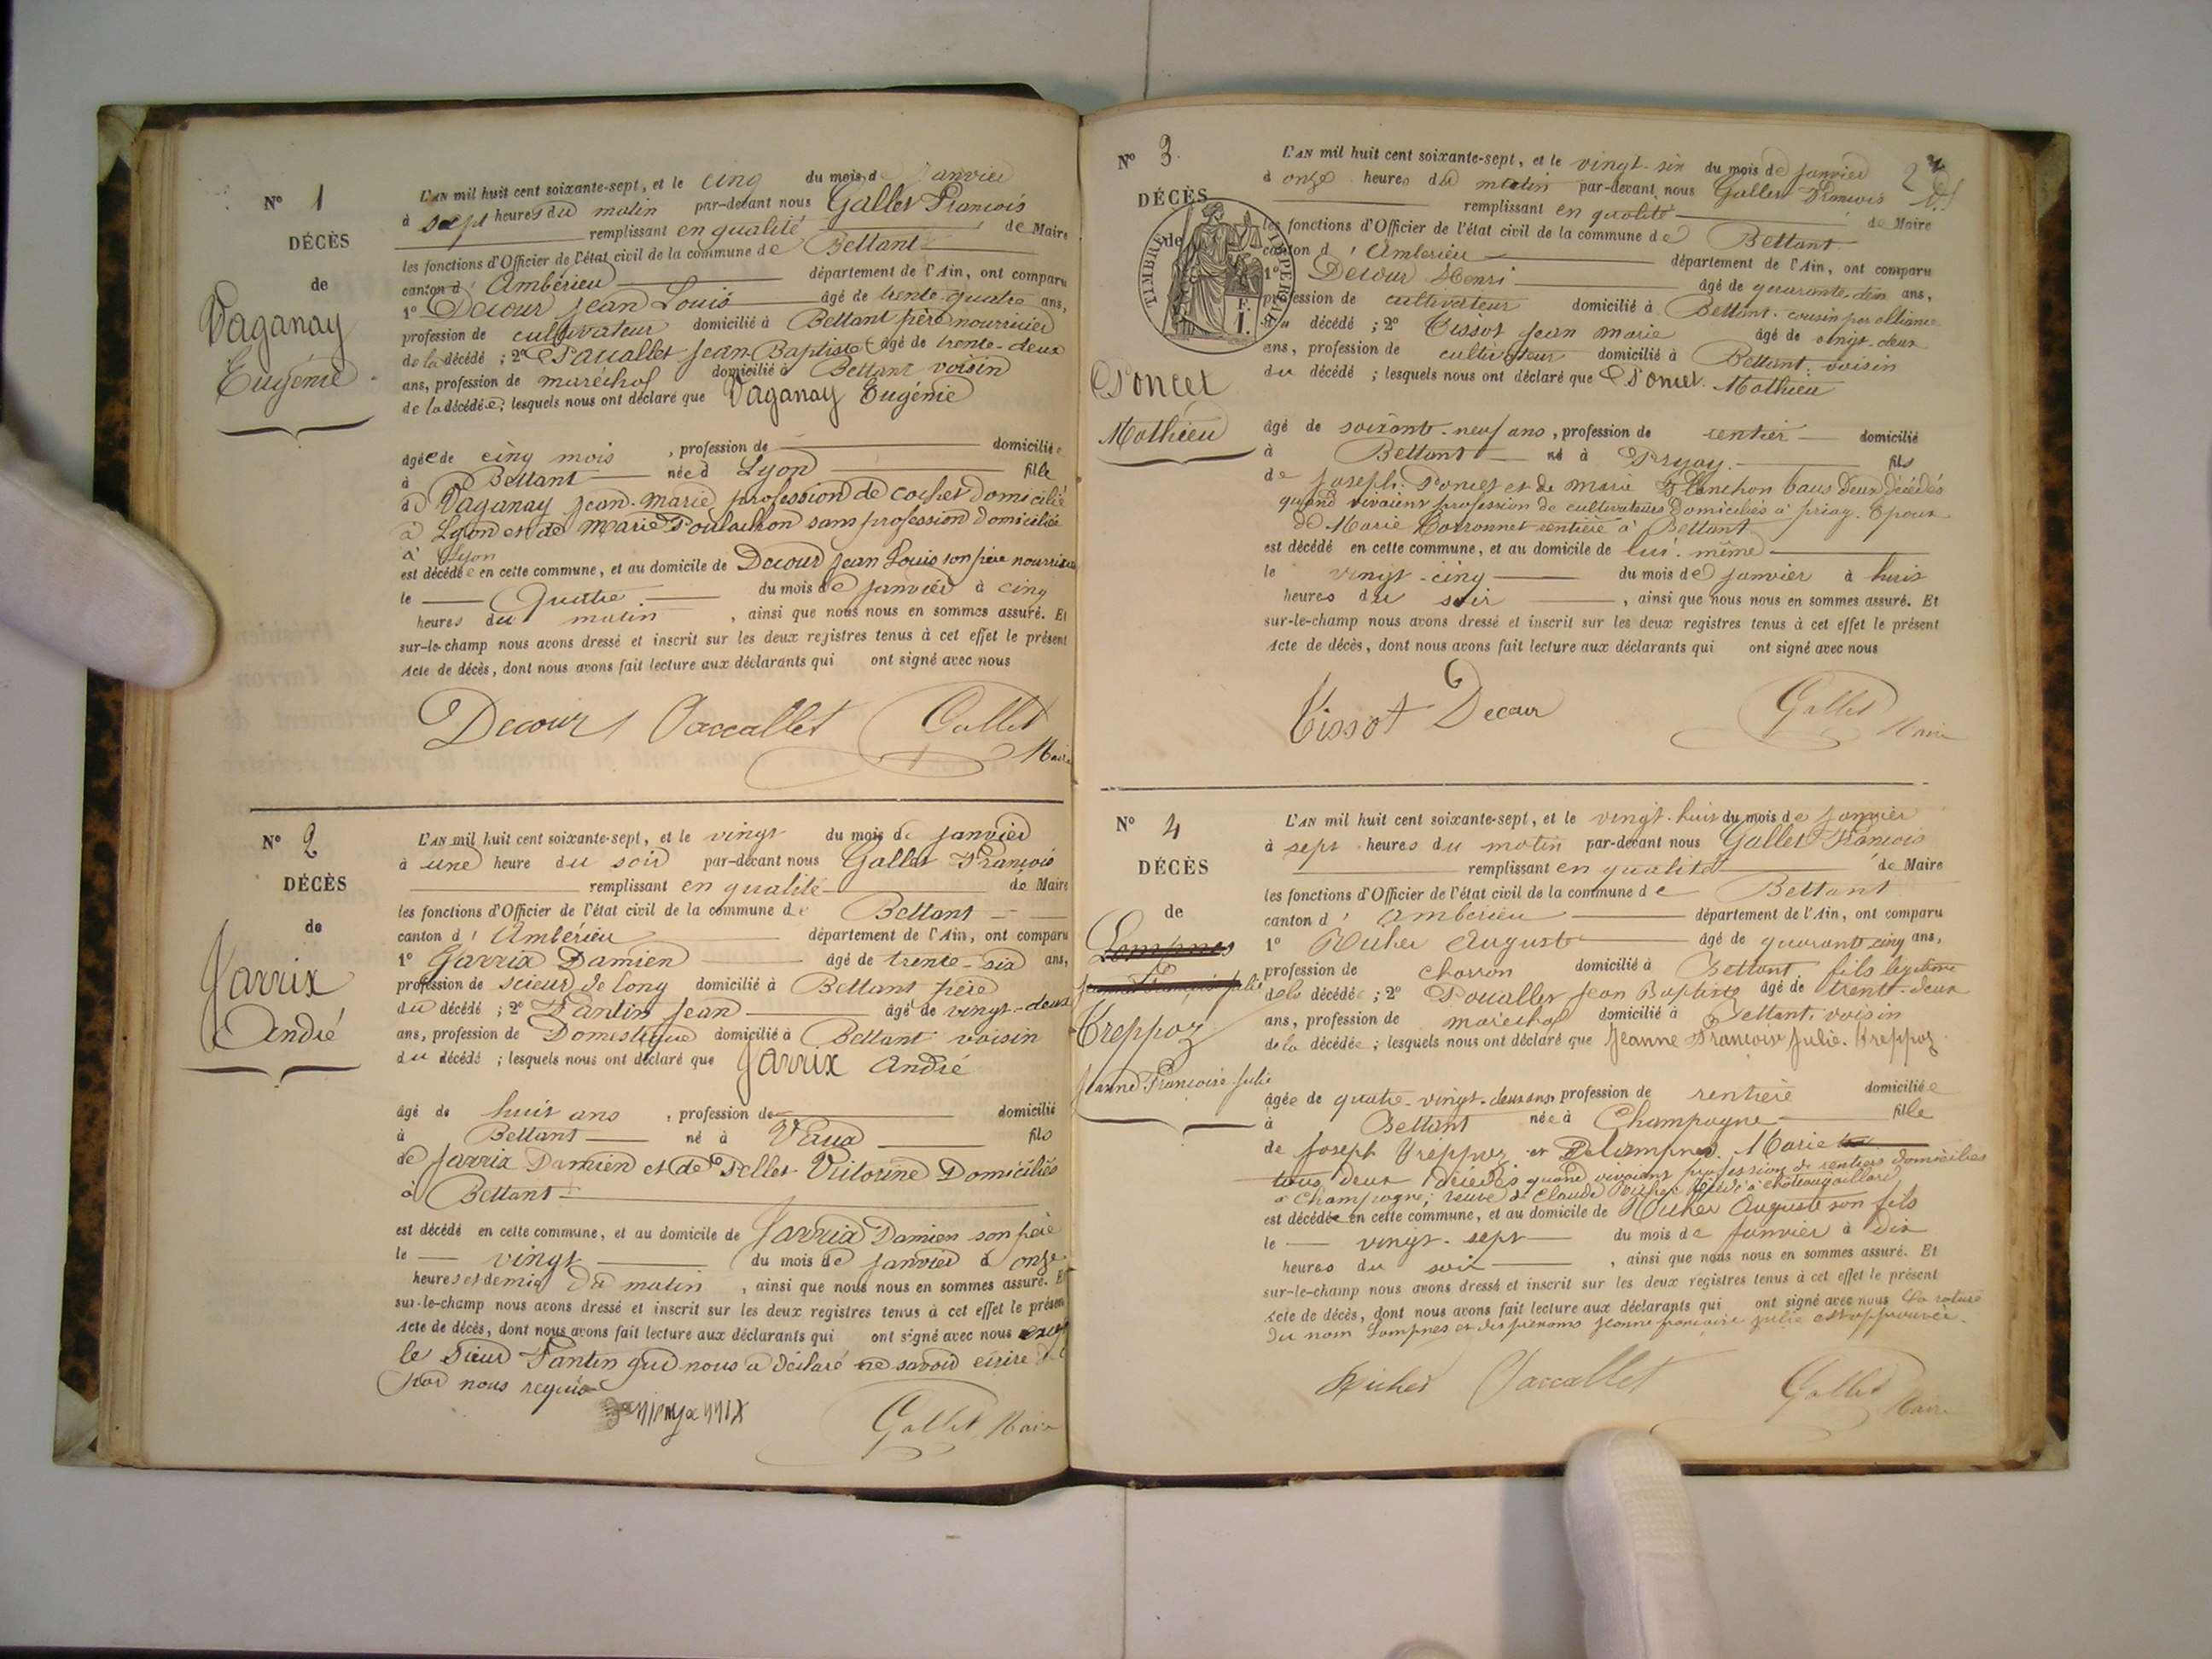 N° 1
DÉCÈS
de
Vaganay
Eugénie
L'AN mil huit cent soixante-sept, et le cinq du mois de janvier
à sept heures du matin par-devant nous Gallet François
remplissant en qualité de Maire
les fonctions d'Officier de l'état civil de la commune de Bettant
canton d' Ambérieu département de l'Ain, ont comparu
1° Decour Jean Louis âgé de trente-quatre ans,
profession de cultivateur domicilié à Bettant père nourricier
de la décédé ; 2° Jean-Baptiste âgé de trente-deux
ans, profession de maréchal domicilié à Bettant voisin
de la décédée ; lesquels nous ont déclaré que Vaganay Eugénie
agée de cinq mois , profession de domiciliée
à Bettant née à Lyon fille
de Vaganay Jean-Marie profession de cocher domicilié
à Lyon et de Marie Poulachon sans profession domiciliée
à Lyon
est décédée en cette commune, et au domicile de Decour Jean Louis son père nourricier
le Quatre du mois de janvier à cinq
heures du matin , ainsi que nous nous en sommes assuré. Et
sur-le-champ nous avons dressé et inscrit sur les deux registres tenus à cet effet le présent
Acte de décès, dont nous avons fait lecture aux déclarants qui ont signé avec nous
Decour Paccallet Gallet
Maire
N° 2
DÉCÈS
de
Jarrix
André
L'AN mil huit cent soixante-sept, et le vingt du mois de janvier
à une heure du soir par-devant nous Gallet François
remplissant en qualité de Maire
les fonctions d'Officier de l'état civil de la commune de Bettant
canton d' Ambérieu département de l'Ain, ont comparu
1° Jarrix Damien âgé de trente-six ans,
profession de scieur de long domicilié à Bettant père
du décédé ; 2° Fantin Jean âgé de vingt-deux
ans, profession de Domestique domicilié à Bettant voisin
du décédé ; lesquels nous ont déclaré que Jarrix André
âgé de huit ans , profession de domicilié
à Bettant né à Vaux fils
de Jarrix Damien et de Pellet Victorine Domiciliés
à Bettant
est décédé en cette commune, et au domicile de Jarrix Damien son père
le vingt du mois de janvier à onze
heures et demie du matin , ainsi que nous nous en sommes assuré. Et
sur-le-champ nous avons dressé et inscrit sur les deux registres tenus à cet effet le présent
Acte de décès, dont nous avons fait lecture aux déclarants qui ont signé avec nous
le sieur Fantin qui nous a déclaré ne savoir écrire de ce
par nous requis
Gallet Maire
N° 3
DÉCÈS
de
TIMBRE IMPERIAL
Poncet
Mathieu
2
L'AN mil huit cent soixante-sept, et le vingt-six du mois de janvier
à onze heures du matin par-devant nous Gallet François
remplissant en qualité de Maire
les fonctions d'Officier de l'état civil de la commune de Bettant
canton d' Ambérieu département de l'Ain, ont comparu
1° Decour Henri âgé de quarante-dix ans,
profession de cultivateur domicilié à Bettant cousin par alliance
du décédé ; 2° Tissot Jean Marie âgé de vingt-deux
ans, profession de cultivateur domicilié à Bettant, voisin
du décédé ; lesquels nous ont déclaré que Poncet Mathieu
âgé de soixante-neuf ans , profession de rentier domicilié
à Bettant né à Pryay fils
de Joseph Poncet et de Marie Planchon tous deux décédés
quand vivaient profession de cultivateurs domiciliés à priay. Epoux
de Marie rentière à Bettant
est décédé en cette commune, et au domicile de lui-même
le vingt-cinq du mois de janvier à huit
heures du soir , ainsi que nous nous en sommes assuré. Et
sur-le-champ nous avons dressé et inscrit sur les deux registres tenus à cet effet le présent
Acte de décès, dont nous avons fait lecture aux déclarants qui ont signé avec nous
Tissot Decour Gallet
Maire
N° 4
DÉCÈS
de
Lompnes
Jeanne Françoise Julie
Treppoz
Jeanne Françoise Julie
L'AN mil huit cent soixante-sept, et le vingt-huit du mois de janvier
à sept heures du matin par-devant nous Gallet François
remplissant en qualité de Maire
les fonctions d'Officier de l'état civil de la commune de Bettant
canton d' Ambérieu département de l'Ain, ont comparu
1° Richer Auguste âgé de quarante cinq ans,
profession de charron domicilié à Bettant, fils légitime
de la décédée ; 2° Jean Baptiste âgé de trente-deux
ans, profession de maréchal domicilié à Bettant, voisin
de la décédée ; lesquels nous ont déclaré que Jeanne Françoise Julie Treppoz
âgée de quatre-vingt-deux ans, profession de rentière domiciliée
à Bettant née à Champagne fille
de Joseph Treppoz et Delompnes Marie
tous deux décédés quand vivaient profession de rentiers domiciliés
à Champagne; veuve de Claude Richer décédé à Châteaugaillard
est décédée en cette commune, et au domicile de Richer Auguste son fils
le vingt-sept du mois de janvier à dix
heures du soir , ainsi que nous nous en sommes assuré. Et
sur-le-champ nous avons dressé et inscrit sur les deux registres tenus à cet effet le présent
Acte de décès, dont nous avons fait lecture aux déclarants qui ont signé avec nous La rature
du nom Lompnes et des prénoms Jeanne françoise julie est approuvée.
Richer Paccallet Gallet
Maire